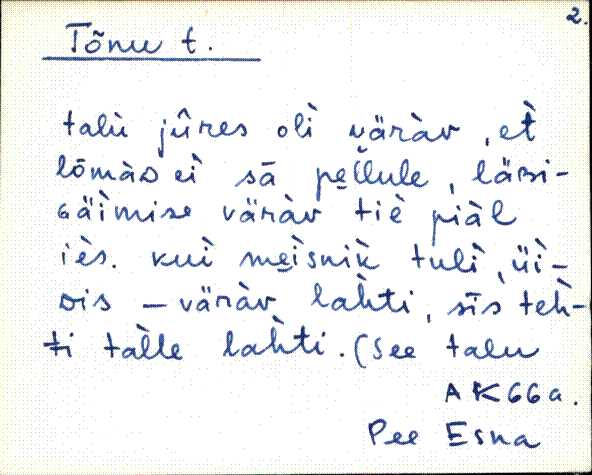 2.
Tõnu t.
talù jûres olì väràv, et̀
lōmàᴅ ei sā pe̬llule, läʙi-
ɢäìmise väràv tiè piàl
iès. kuì me̬ìsnik̀ tulì, üì-
ᴅis – väràv lah̀ti, sīs teh̀-
ti tàlle lah̀ti. (See talu
AK66a.
Pee Esna